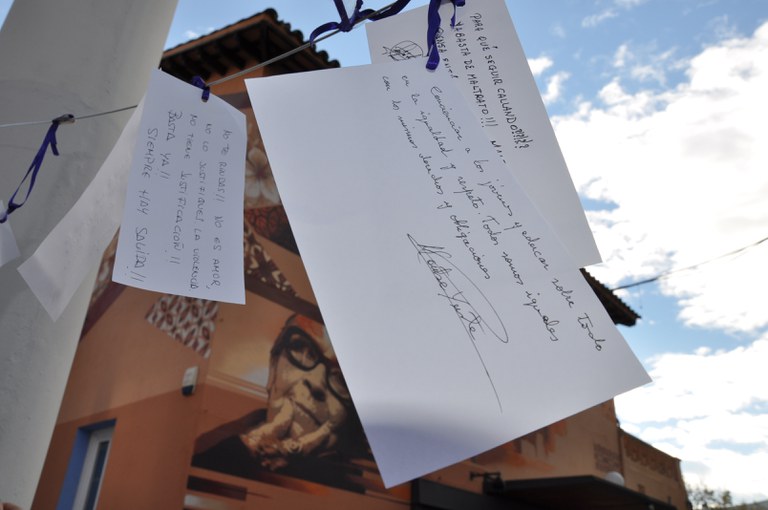 NO TE RINDAS!! NO ES AMOR,
NO LO JUSTIFIQUES. LA VIOLENCIA
NO TIENE JUSTIFICACIÓN!!
BASTA YA!!
SIEMPRE HAY SALIDA!!
Concienciar a los jóvenes y educar sobre todo
en la igualdad y respeto. Todos somos iguales
con los mismos derechos y obligaciones
PARA QUÉ SEGUIR CALLANDO???
BASTA DE MALTRATO!!!